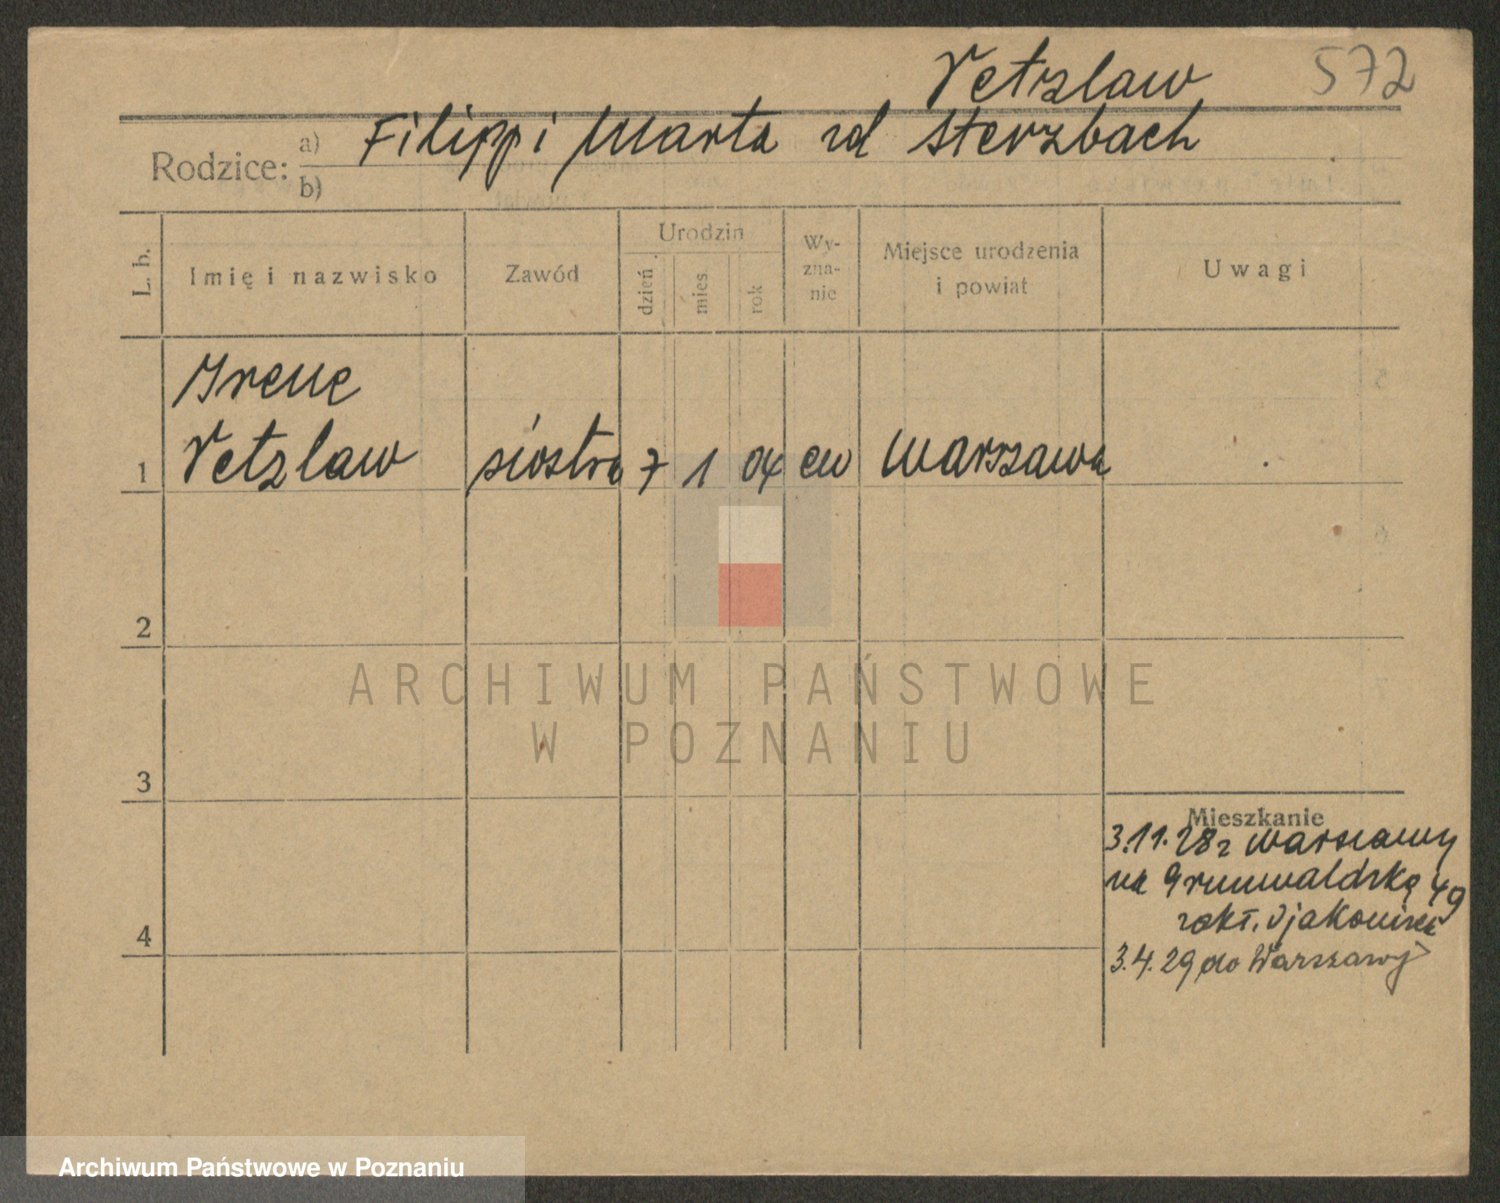 Vetzlaw 572
Rodzice: a) Filippi Marta zd Sterzbach
b)
L. b.
Imię i nazwisko
Zawód
Urodzin
dzień
mies.
rok
Wy-
zna-
nie
Miejsce urodzenia
i powiat
Uwagi
Irene
1 Vetzlaw siostra 7 1 04 ew Warszawa
2
3
4
Mieszkanie
3.11.28 z Warszawy
na Grunwaldzką 49
zakł.
3.4.29 do Warszawy
ARCHIWUM PAŃSTWOWE
W POZNANIU
Archiwum Państwowe w Poznaniu